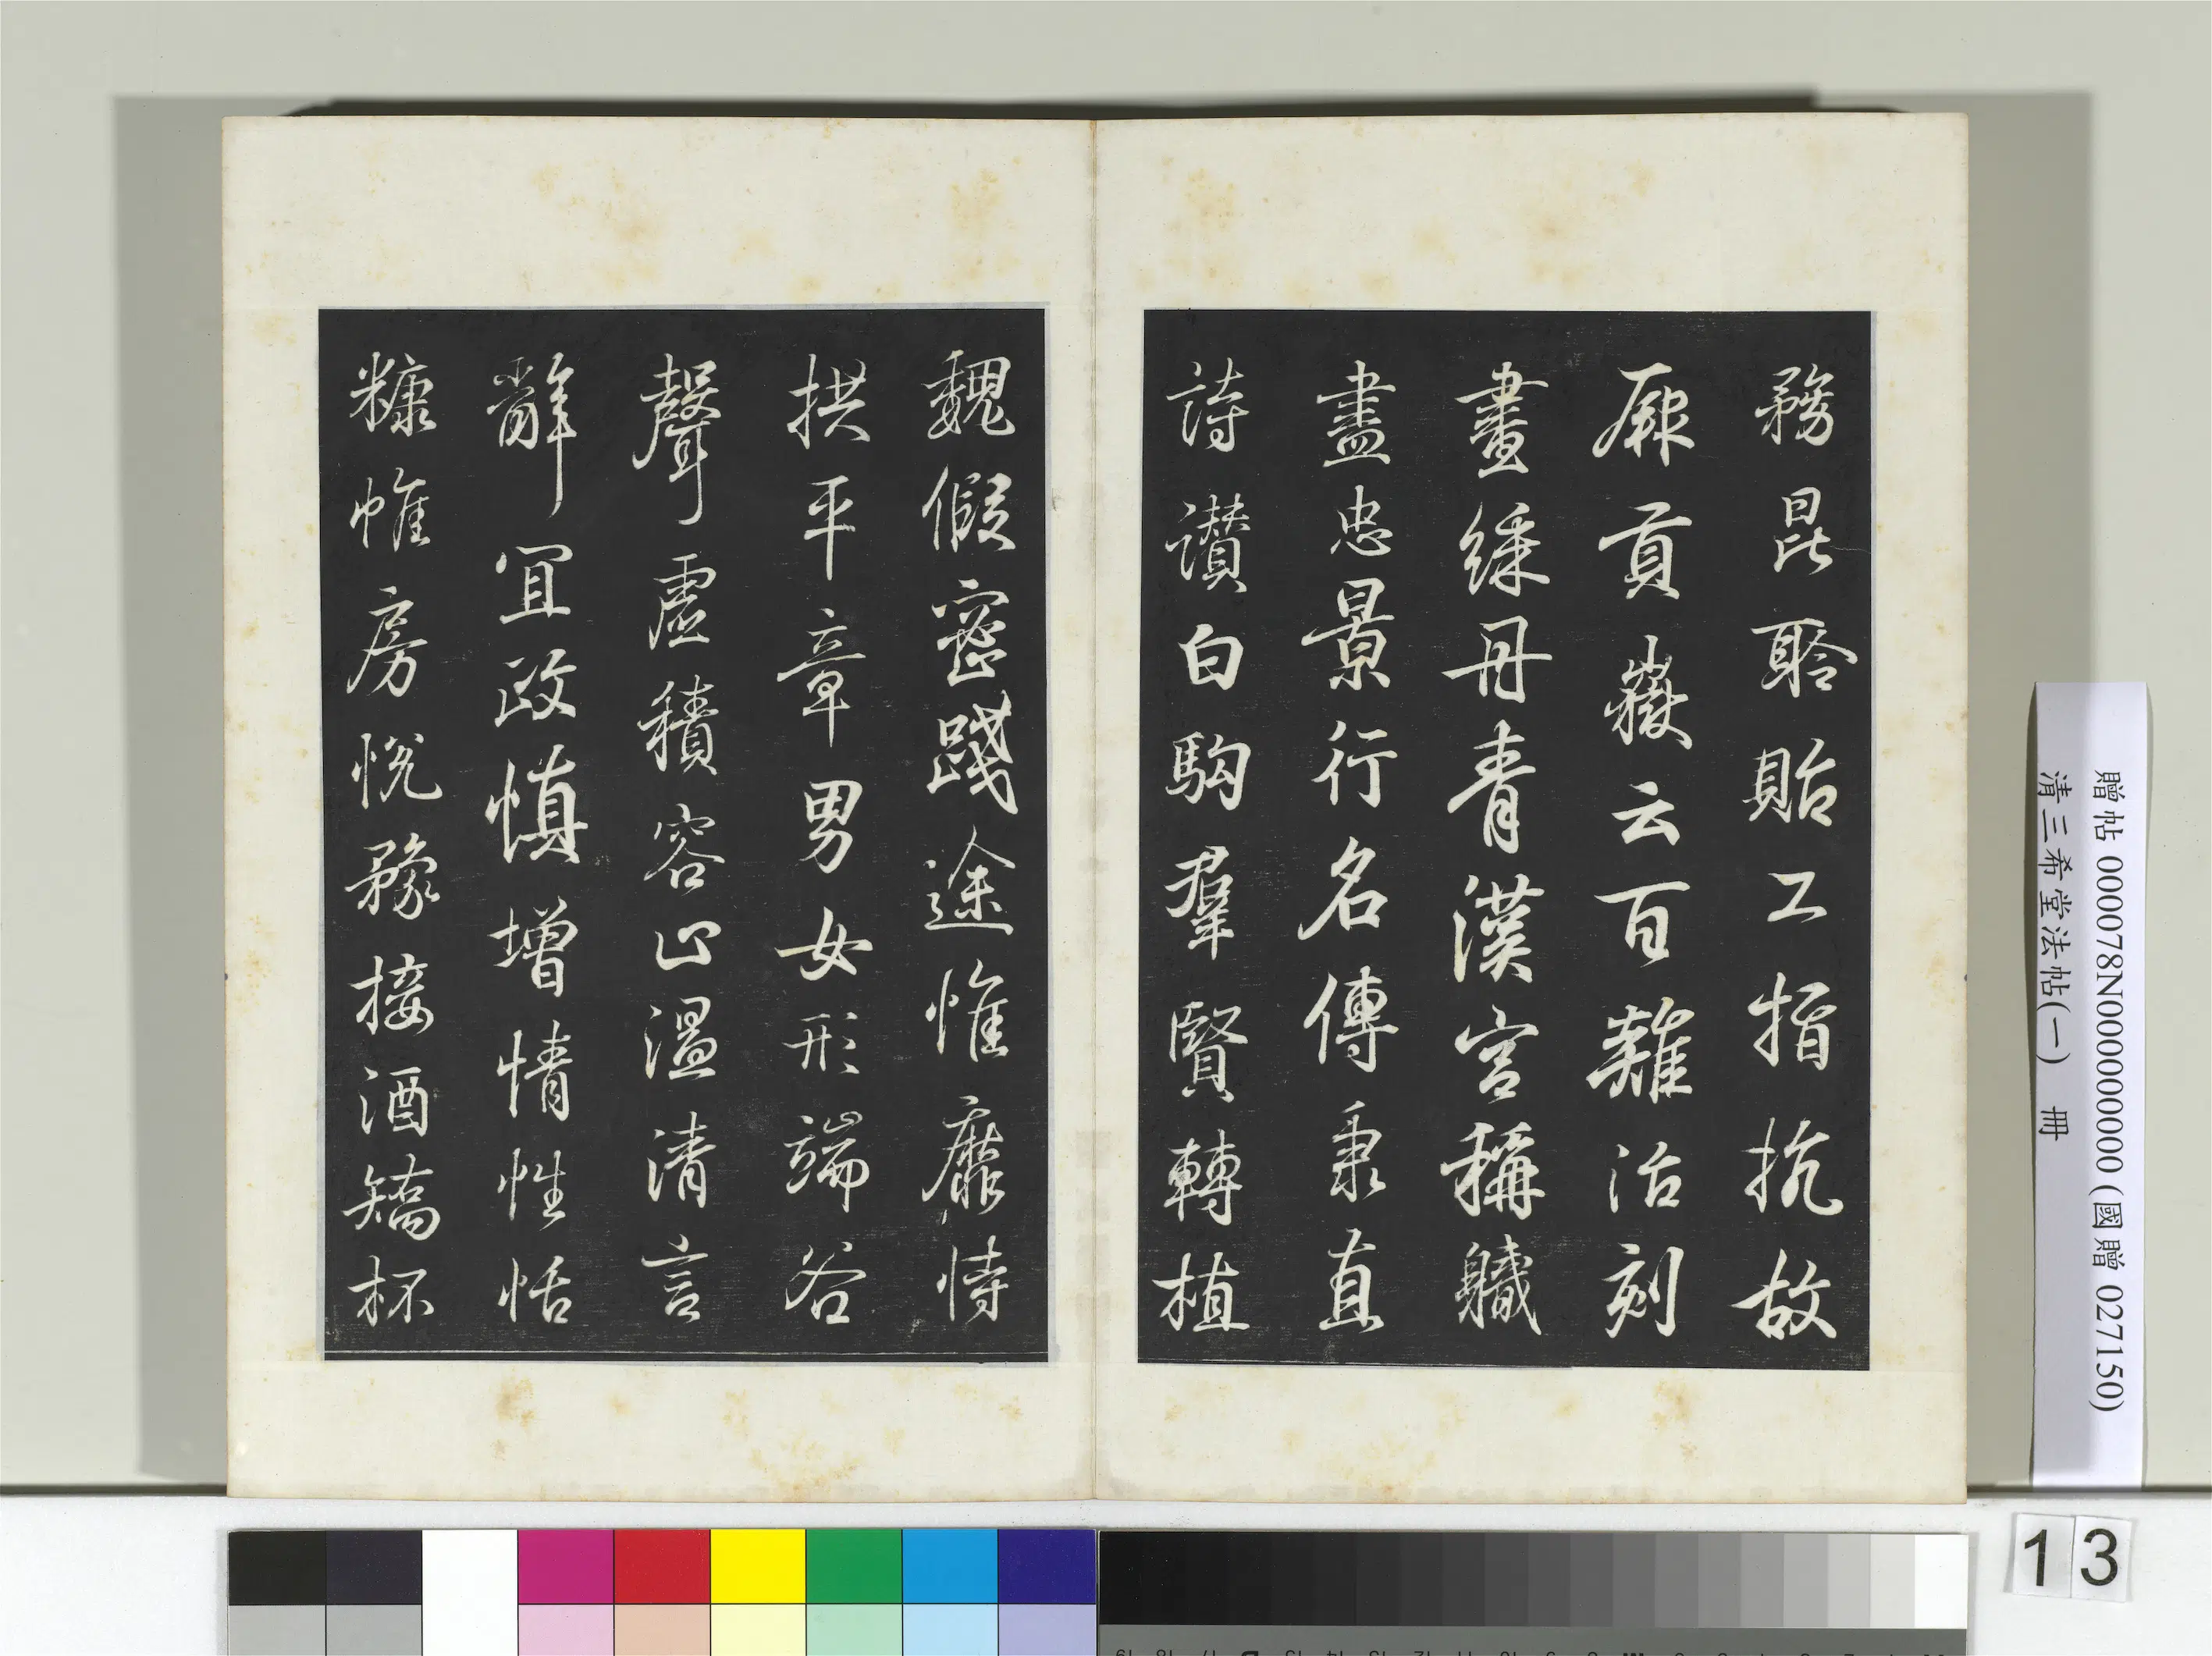 務昆聆貽工指抗故
厥貢嶽云百雞治刻
畫綵丹青漢宮稱職
盡忠景行名傳秉直
詩讚白駒羣賢轉植
魏假密踐途惟靡恃
拱平章男女形端谷
聲虛積容止溫清言
辭宜政慎增情性恬
糠帷房悅豫接酒矯杯
贈帖 000078N000000000 (國贈 027150)
清三希堂法帖(一) 冊
13